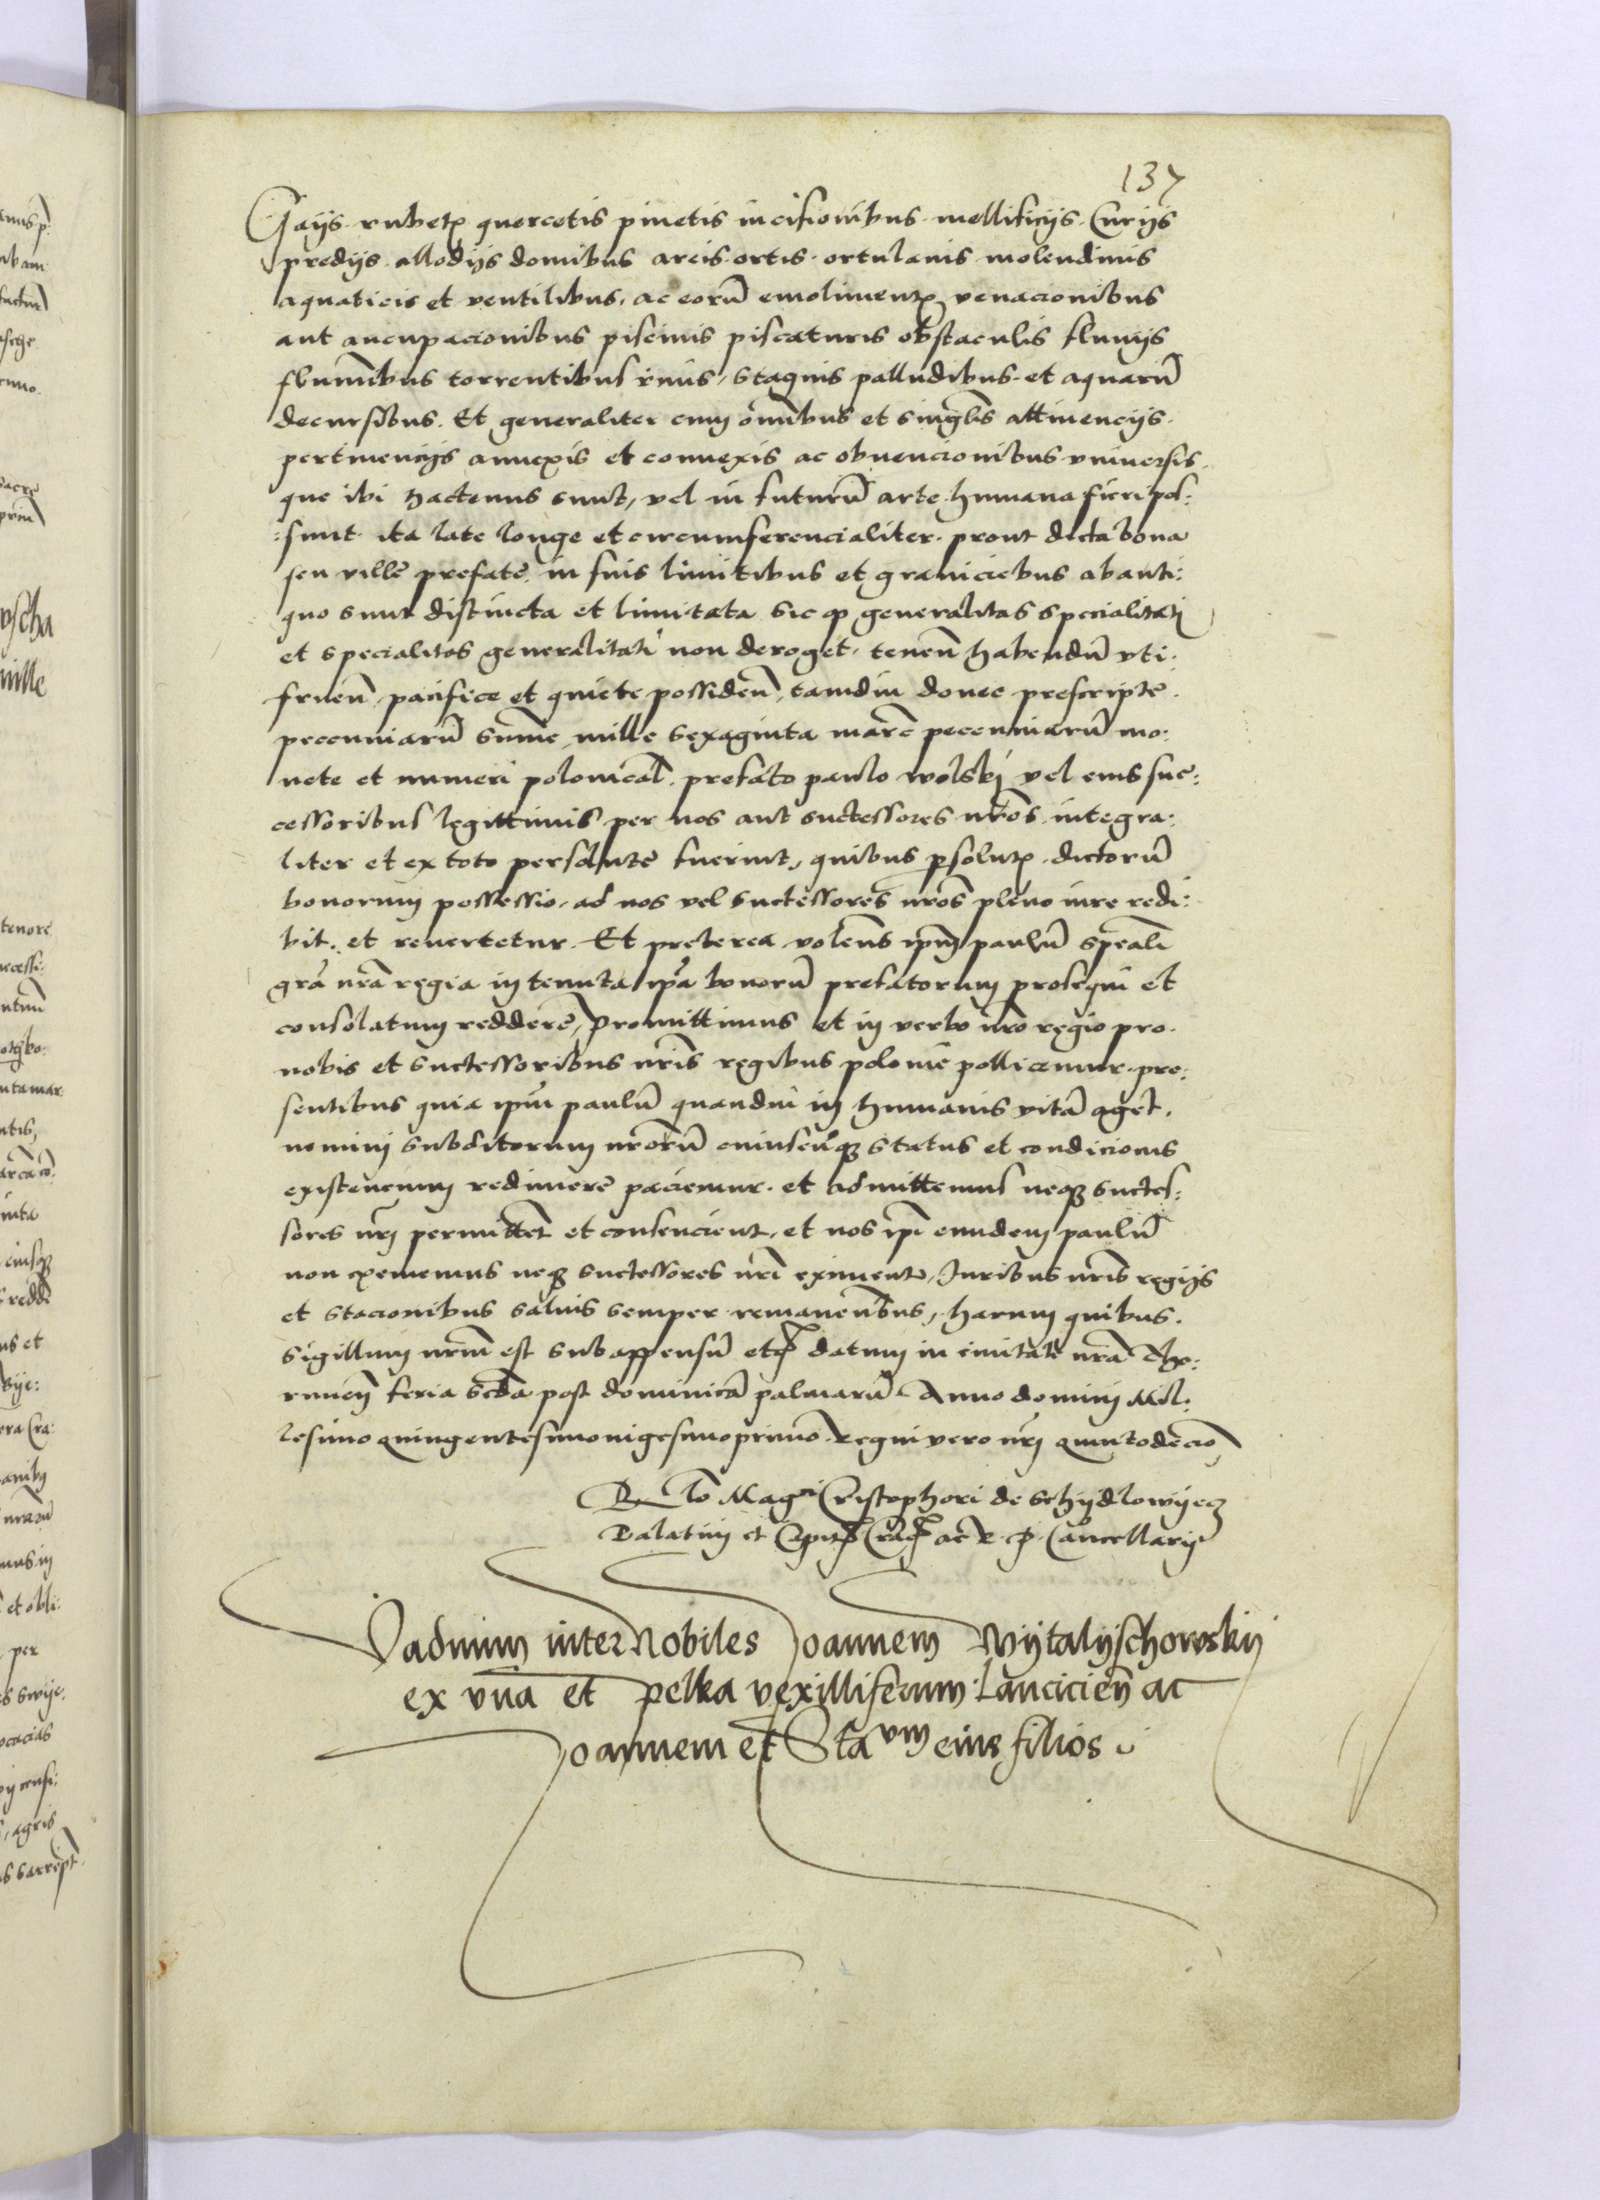 137
Gaÿs rubetꝝ quercetis pinetis incisionibus mellificÿs Curÿs
predÿs allodÿs domibus areis ortis ortulanis molendinis
aquaticis et ventilibus, ac eorū emolimentꝝ venacionibus
aut aucupacionibus piscinis piscaturis obstaculis fluvÿs
fluminibus torrentibus rivis, stagnis palludibus et aquarū
decursibus. Et generaliter cum oīnibus et singlīs attinencÿs
pertinencÿs annexis et connexis ac obvencionibus universis
que ibi hactenus sunt, vel in futurū arte humana fieri pos:
:sunt ita late longe et circumferencialiter prout dicta bona
seu ville prefate in suis limitibus et graniciebus abanti:
quo sunt distincta et limitata sic ꝙ generalitas specialitati
et specialitas generalitati non deroget, tenen̄ habendū uti:
fruen̄, pacifice et quiete possiden̄, tamdiu donec prescripte
peccuniarū sum̄e mille sexaginta marc̄ peccuniarū mo:
nete et numeri polonical̄ prefato paulo wolskj vel eius suc:
cessoribus legittimis per nos aut successores nr̄os integra:
liter et ex toto persolute fuerint, quibus ꝑsolutꝝ dictorū
bonorum possessio, ad nos vel successores nr̄os pleno iure redi:
bit et revertetur. Et preterea volens ip̄m paulū sp̄eali
gr̄a nr̄a regia in tenuta ip̄a bonorū prefatorum prosequi et
consolatum reddere, promittimus et in verbo nr̄o regio pro
nobis et successoribus nr̄is regibus polonie pollicemur pre:
sentibus quia ip̄m paulū quamdiu in humanis vitā aget,
nemini subditorum nr̄orū cuiuscūqꝫ status et condicionis
existencium redimere paciemur et admittemus neqꝫ succes:
sores nr̄j permittēt et consencient, et nos ip̄i eundem paulū
non eximemus neqꝫ successores nr̄i eximent, Juribus nr̄is regÿs
et stacionibus salvis semper remanentibus, harum quibus
sigillum nr̄m est subappensū etc̄ datum in civitate nr̄a Tho:
runien̄ feria secda post dominicā palmarū Anno domini Mil:
lesimo quingentesimovigesimoprimo Regni vero nr̄j quintodecio
R̄lo Magci Cristophori de Schÿdlowÿecz
Palatini et Capit̄ Crac̄ ac R. P. Cancellarÿ
Vadium inter Nobiles Joannem Wÿtalÿschowskÿ
ex vna et pelka vexilliferum Lancicien̄ ac
Joannem et Stavm eius filios